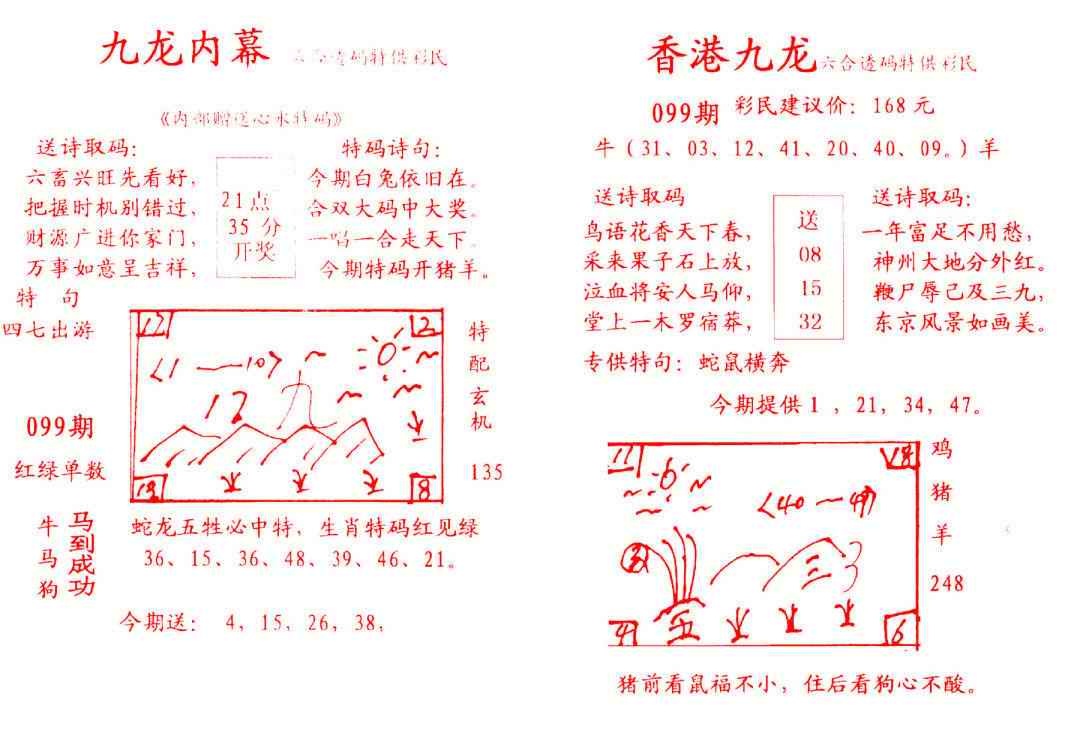 九龙内幕 六合透码特供彩民
《内部赠送心水特码》
送诗取码：
六畜兴旺先看好，
把握时机别错过，
财源广进你家门，
万事如意呈吉祥，
21点
35 分
开奖
特码诗句：
今期白兔依旧在。
合双大码中大奖。
一唱一合走天下。
今期特码开猪羊。
特 句
四七出游
099期
红绿单数
12
2
〈1 — 10〉
12 九
18
8
特
配
玄
机
135
牛
马
狗
马到成功
蛇龙五牲必中特，生肖特码红见绿
36、15、36、48、39、46、21。
今期送： 4，15，26，38，
香港九龙 六合透码特供彩民
099期 彩民建议价：168元
牛（31、03、12、41、20、40、09。）羊
送诗取码
鸟语花香天下春，
采来果子石上放，
泣血将安人马仰，
堂上一木罗宿莽，
送
08
15
32
送诗取码：
一年富足不用愁，
神州大地分外红。
鞭尸辱己及三九，
东京风景如画美。
专供特句：蛇鼠横奔
今期提供1 ，21，34，47。
11
6
〈40 — 49〉
三
9
鸡
猪
羊
248
猪前看鼠福不小，住后看狗心不酸。